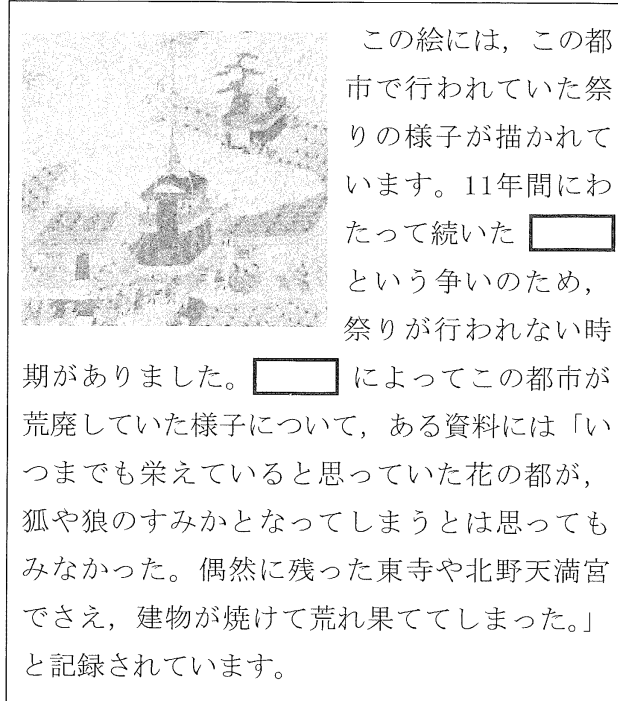 この絵には，この都
市で行われていた祭
りの様子が描かれて
います。11年間にわ
たって続いた
という争いのため，
祭りが行われない時
期がありました。 によってこの都市が
荒廃していた様子について，ある資料には「い
つまでも栄えていると思っていた花の都が，
狐や狼のすみかとなってしまうとは思っても
みなかった。偶然に残った東寺や北野天満宮
でさえ，建物が焼けて荒れ果ててしまった。」
と記録されています。